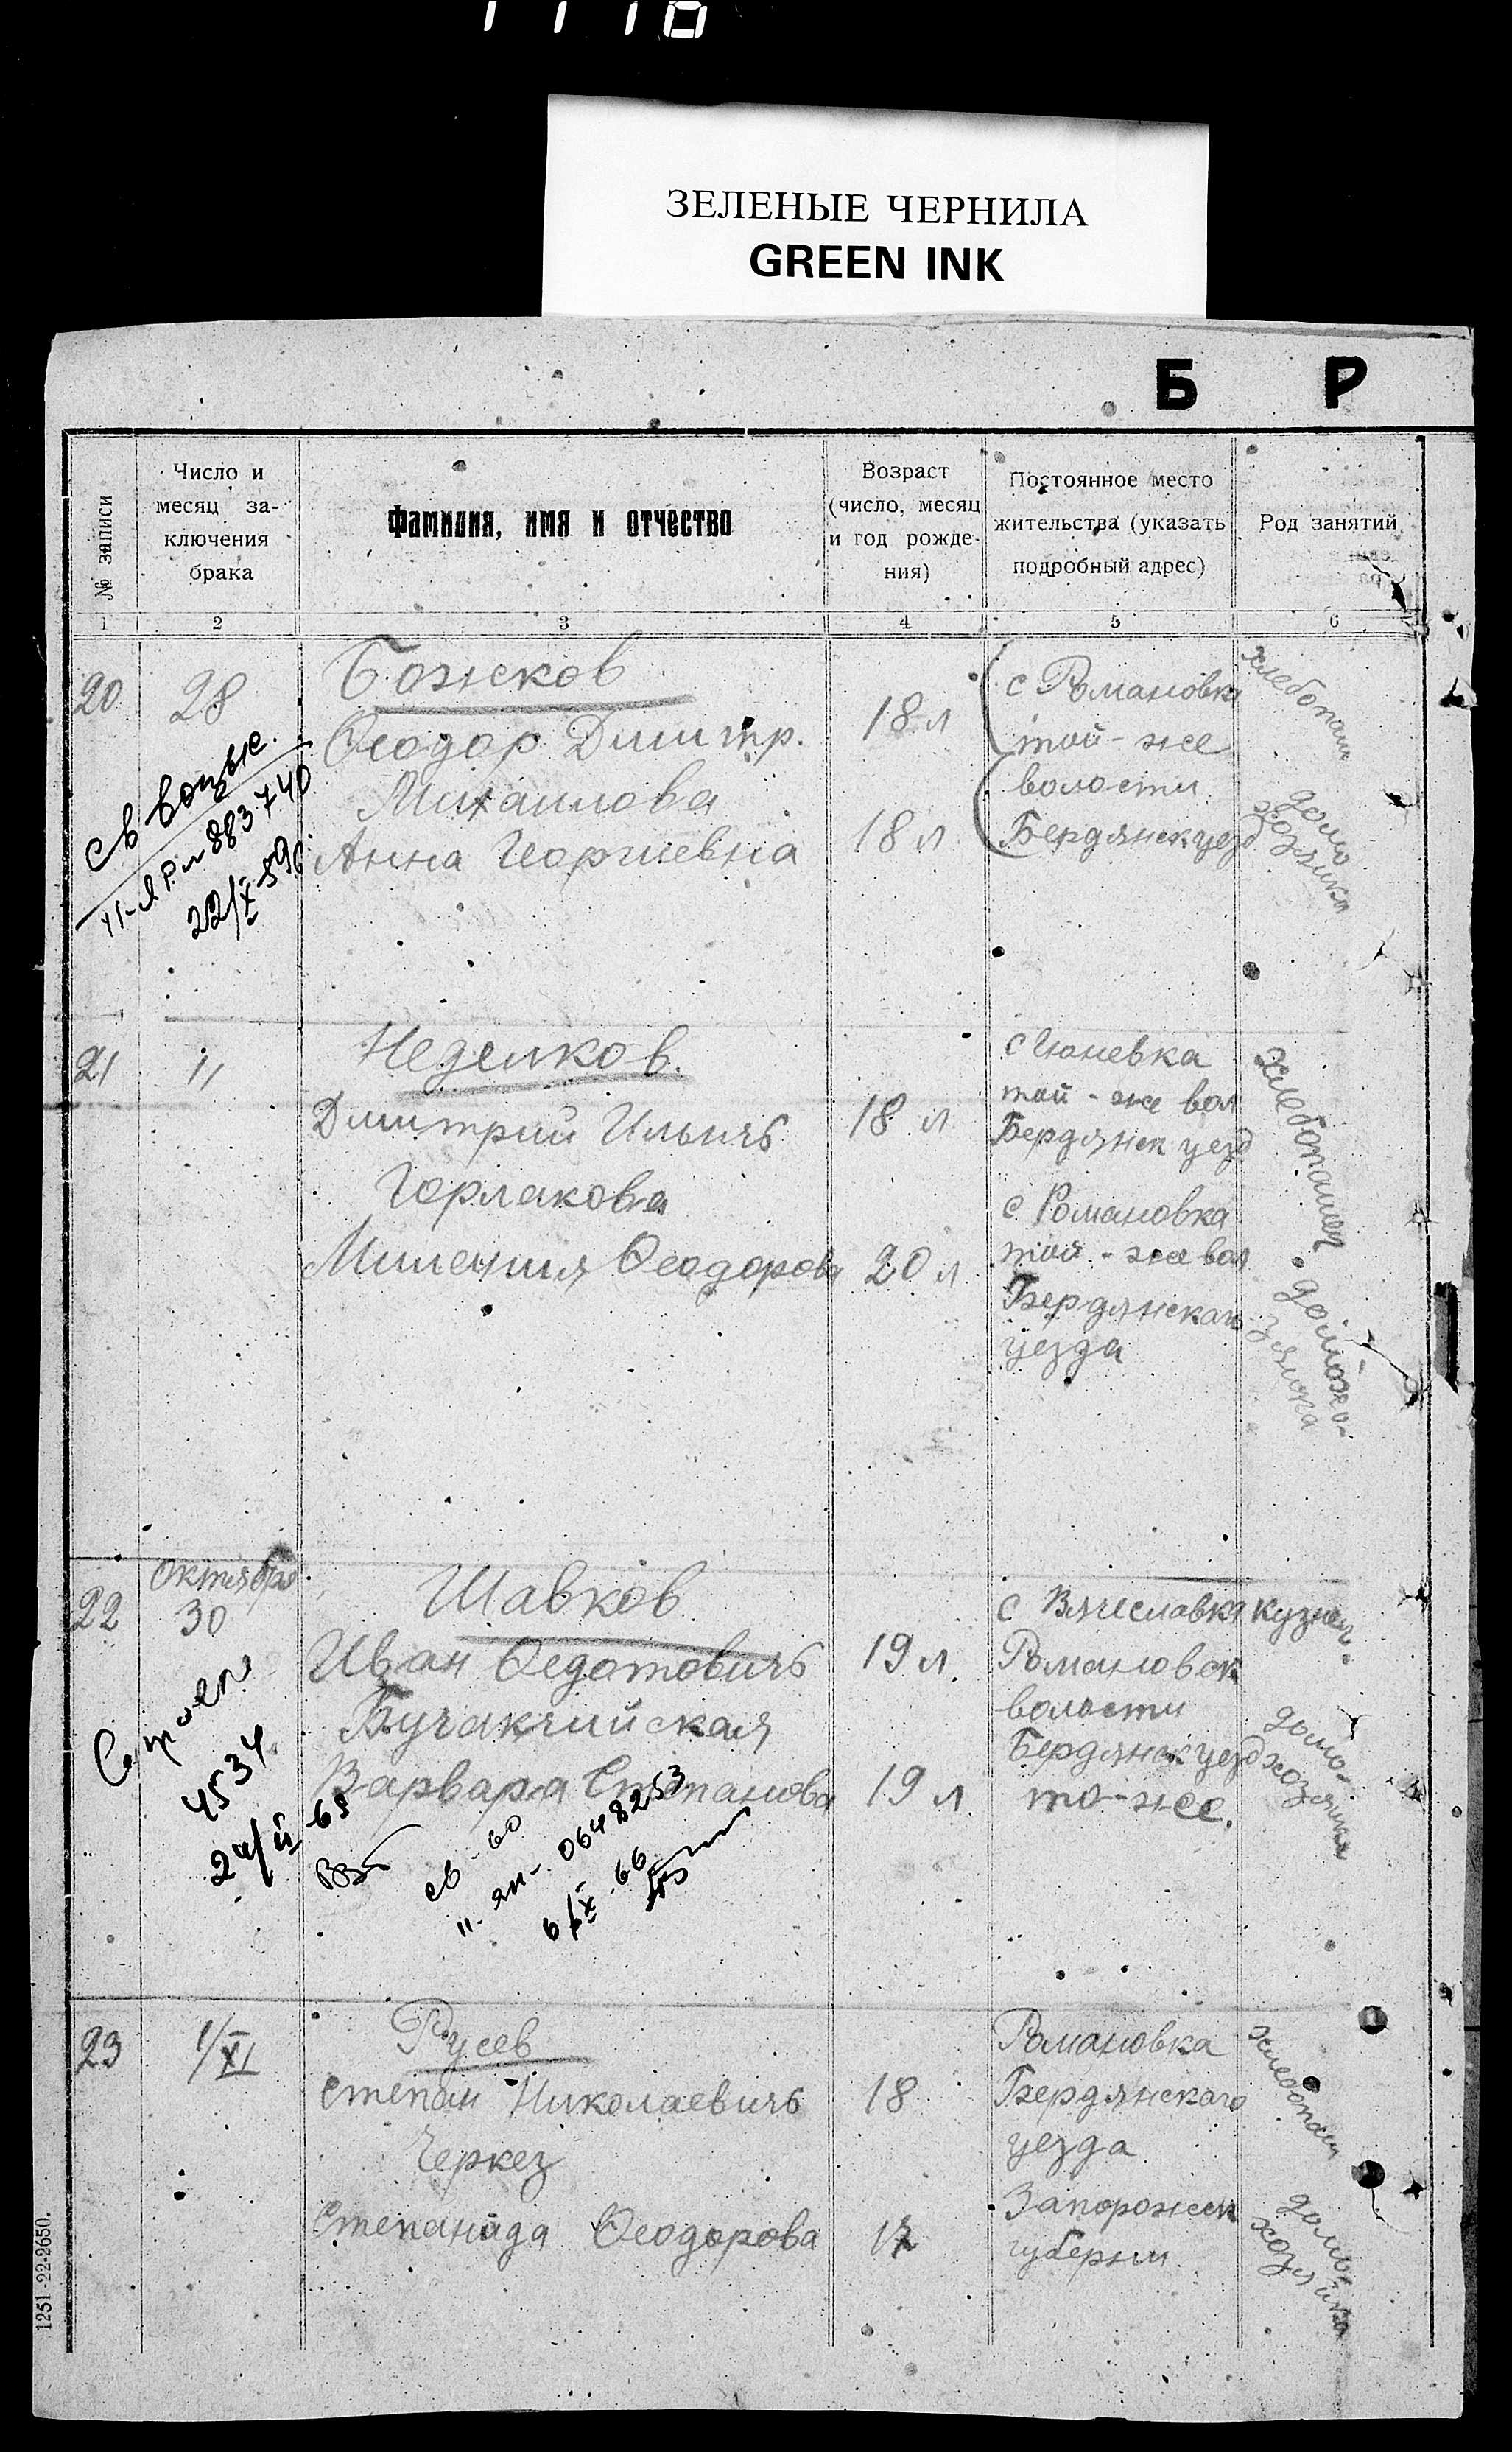 ЗЕЛЕНЫЕ ЧЕРНИЛА
GREEN INK
Б Р
№ записи
Число и
месяц за-
ключения
брака
Фамилия, имя и отчество
Возраст
(число, месяц
и год рожде-
ния)
Постоянное место
жительства (указать
подробный адрес)
Род занятий
1 2 3 4 5 6
20
28
Божков
Феодор Димитр.
Михаилова
Анна Георгиевна
18 л
18 л
с Романовка
той-же
волости
Бердянск уезд
хлебопаш
домо
хозяйка
883740
22/X-59
21
11
Неделков.
Дмитрий Ильичъ
Горлакова
Милания Феодорова
18 л
20 л
с Гюневка
той-же вол
Бердянск уезд
с Романовка
той-же вол
Бердянскаго
уезда
хлебопашец
домохо-
зяйка
22
Октября
30
Шавков
Иван Федотовичъ
Бучакчийская
Варвара Степанова
19 л.
19 л
с Вячеславка
Романовск
волости
Бердянск уезд
то-же.
кузнец
домо-
хозяйка
4534
24/II-69
св-во
0648253
6/IX-66
23
1/XI
Русев
Степан Николаевичъ
Черкез
Степанида Феодорова
18
17
Романовка
Бердянскаго
уезда
Запорожск
губернии
хлебопаш
домо
хозяйка
1251-22-2650.